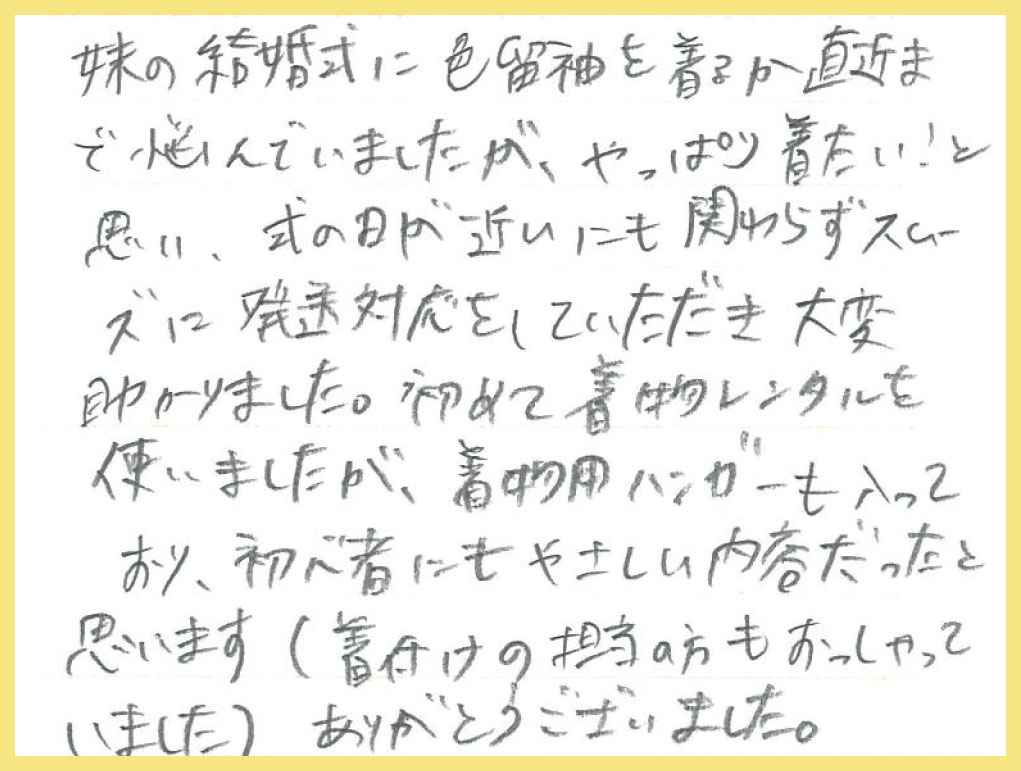 妹の結婚式に色留袖を着るか直近ま
で悩んでいましたが、やっぱり着たい!と
思い、式の日が近いにも関わらずスムー
ズに発送対応をしていただき大変
助かりました。初めて着物レンタルを
使いましたが、着物用ハンガーも入って
おり、初心者にもやさしい内容だったと
思います(着付けの担当の方もおっしゃって
いました)ありがとうございました。